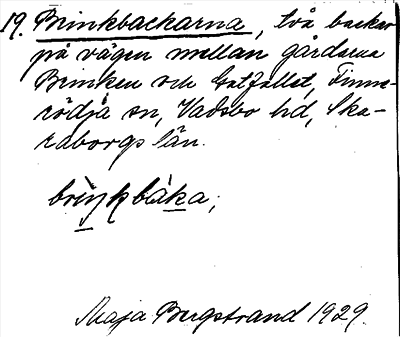 19. Brinkbackarna, två backar
på vägen mellan gårdarna
Brinken och Gatfallet, Finne-
rödja sn, Vadsbo hd, Ska-
raborgs län.
brìŋkbàka;
Maja Bergstrand 1929.